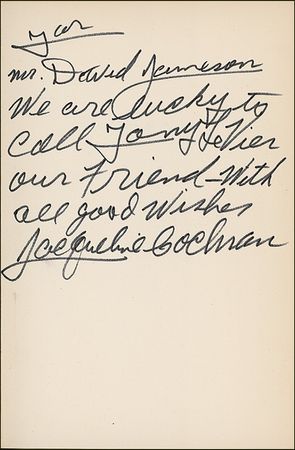 For
Mr. David Jameson
We are lucky to
call Tony LeVier
our Friend - With
all good Wishes
Jacqueline Cochran